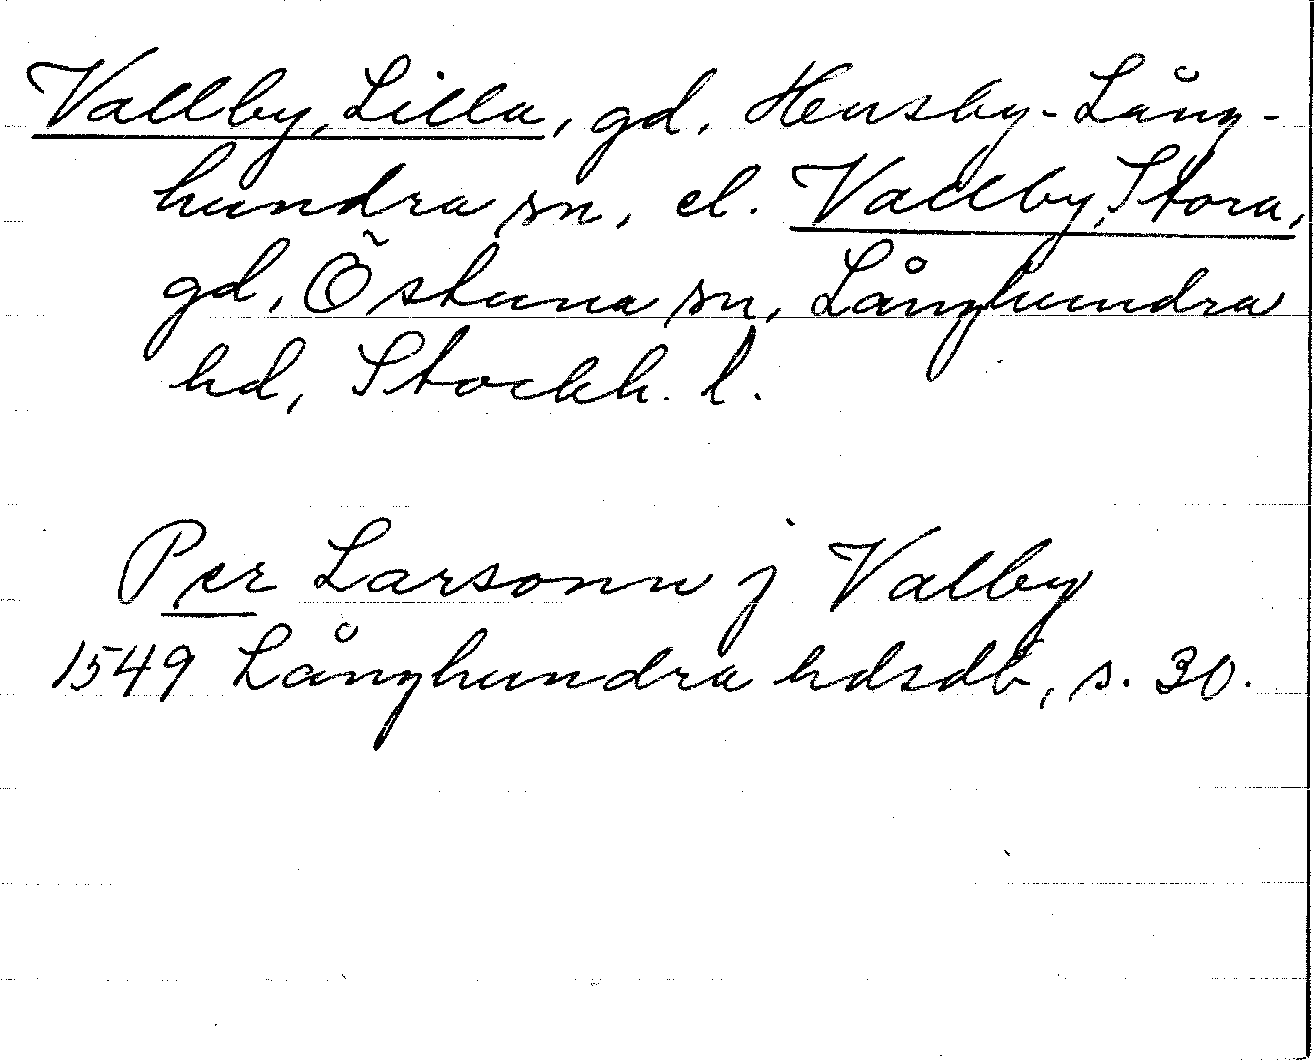 Vallby, Lilla, gd, Husby-Lång-
hundra sn, el. Vallby, Stora,
gd, Östuna sn, Långhundra
hd, Stockh. l.
Per Larsonn j Valby
1549 Långhundra hdsdb, s. 30.